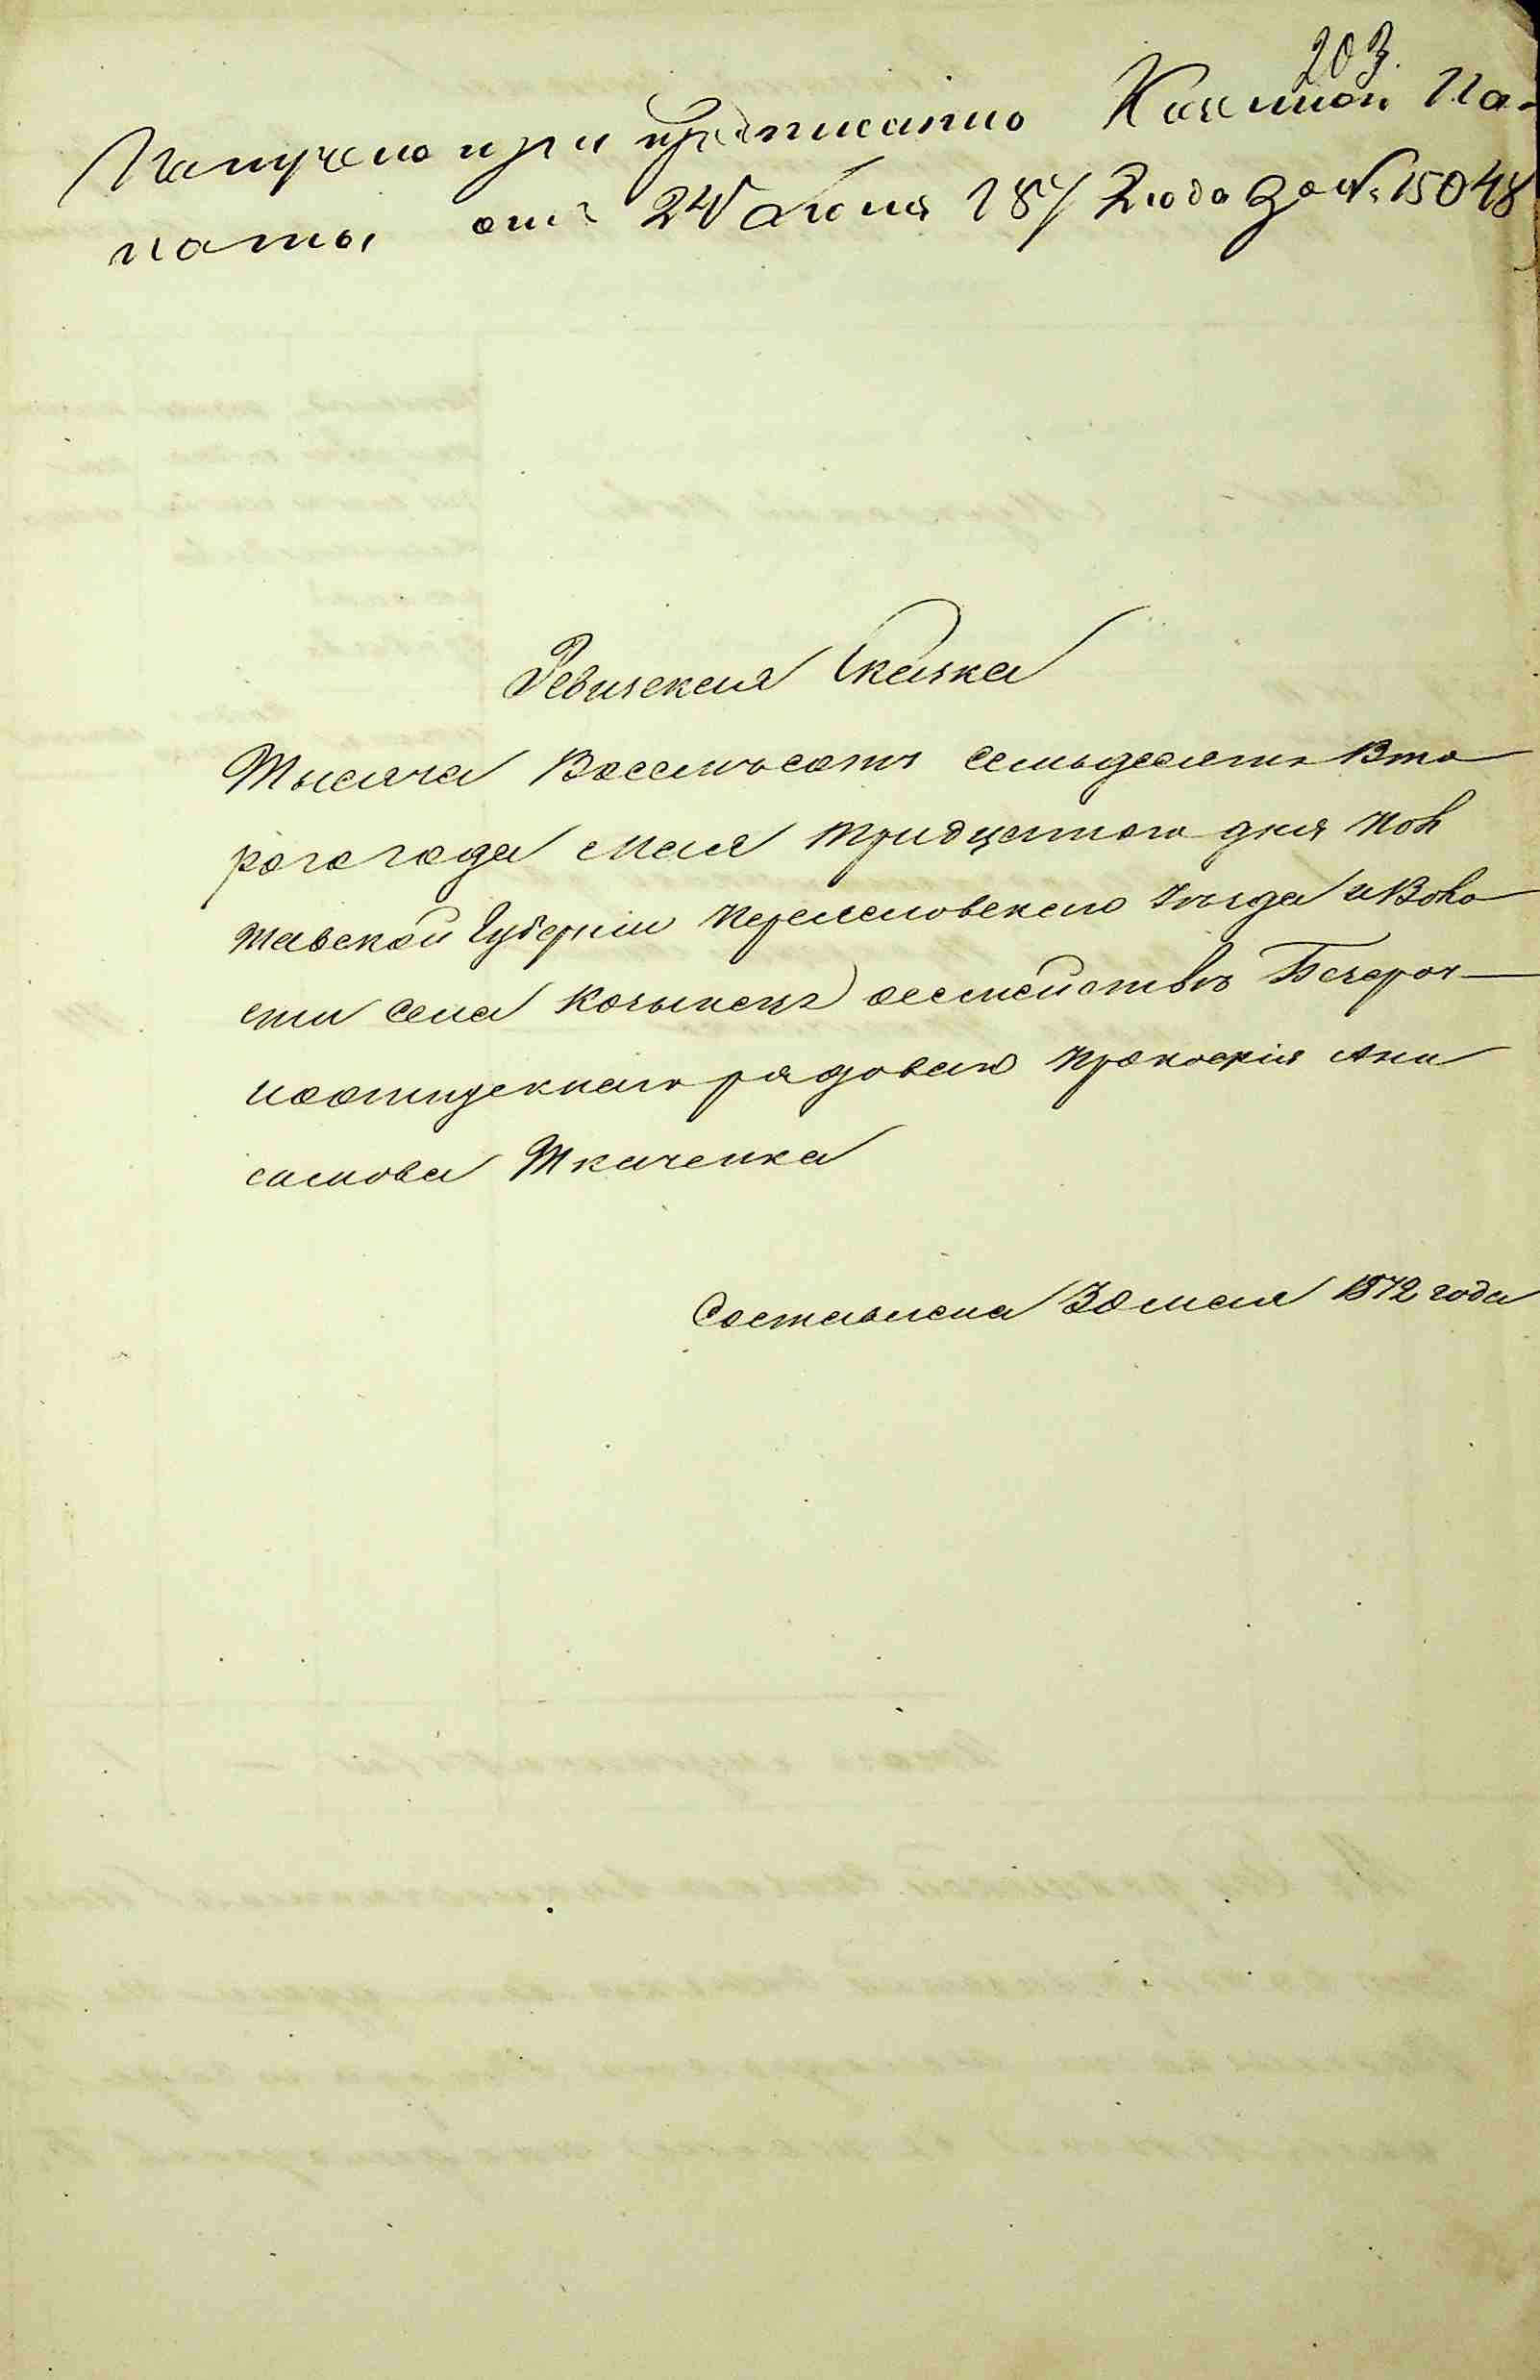 203.
Получено при предписанию Казенной Па-
латы отъ 24 Іюня 1872 года за № 15048
Ревизская Сказка
Тысяча Восемьсотъ семьдесятъ Вто
раго года мая тридцатаго дня Пол
тавской Губерніи Переяславского Уѣзда и Воло
сти села Козинецъ о семействѣ Безсроч
ноотпускнаго рядоваго Прокофія Ани
симова Ткаченка
Составлена 30 мая 1872 года